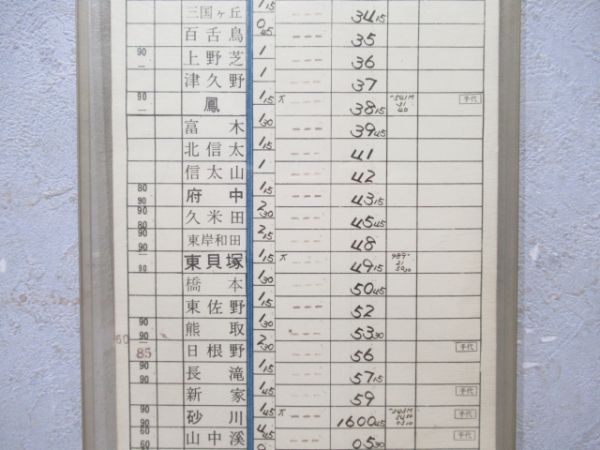 三国ヶ丘 1 15 --- 34 15
百舌鳥 0 45 --- 35
90 上野芝 1 --- 36
津久野 1 --- 37
90 鳳 1 15 --- 38 15 手代
富木 1 30 --- 39 45
北信太 1 15 --- 41
信太山 1 --- 42
80 府中 1 15 --- 43 15
90 80 久米田 2 30 --- 45 45
90 90 東岸和田 2 15 --- 48
90 東貝塚 1 15 --- 49 15
橋本 1 30 --- 50 45
東佐野 1 15 --- 52
90 熊取 1 30 --- 53 30
60 90 85 日根野 2 30 --- 56 手代
90 90 長滝 1 15 --- 57 15
新家 1 45 --- 59 手代
90 90 砂川 1 45 1600 45 手代
90 60 山中溪 4 45 --- 05 30 手代
60